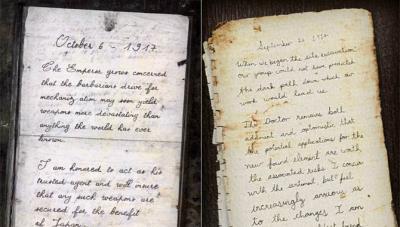 October 6 - 1917
The Emperor grows concerned
that the barbarians drive for
mechanization may soon yield
weapons more devastating than
anything the world has ever
known.
I am honored to act as his
trusted agent and will insure
that any such weapons are
secured for the benefit
of Japan.
September 21
When we began the site excavation
our group could not have predicted
the dark path down which our
work would lead us.
The Doctor remains both
adamant and optimistic that
the potential applications for the
new found element are worth
the associated risks. I concur
with the
increasingly anxious as
to the changes I am